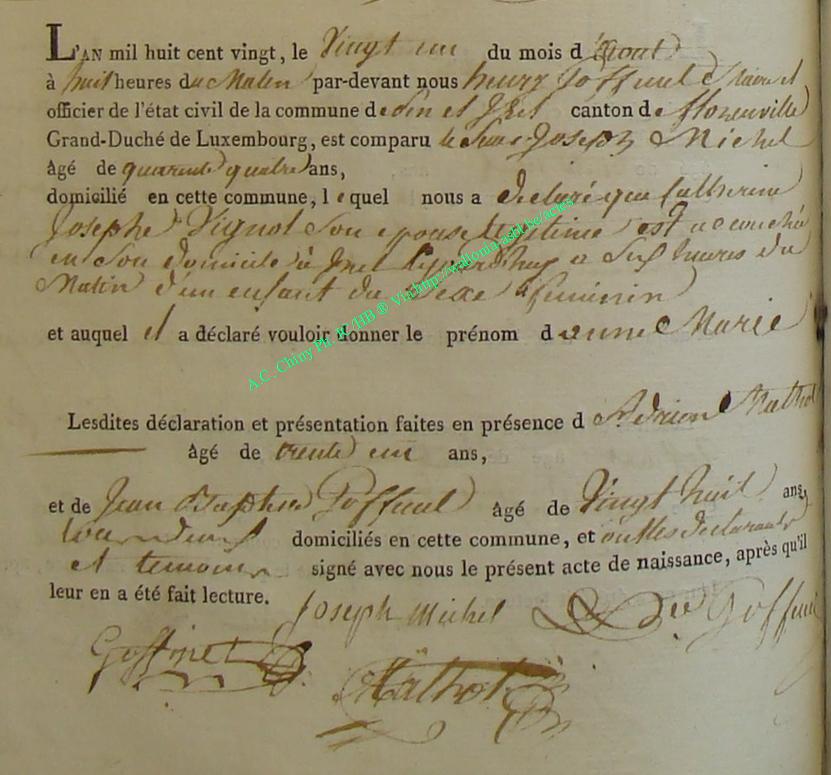 L'AN mil huit cent vingt, le Vingt un du mois d'Aout
à huit heures du Matin par-devant nous henry Goffinet Maire et
officier de l'état civil de la commune de et Izel canton de florenville
Grand-Duché de Luxembourg, est comparu le Sieur Joseph Michel
âgé de quarante quatre ans,
domicilié en cette commune, lequel nous a declaré que Catherine
Josephe Vignol Son epouse legitime est accouchée
en Son domicile à Izel a Six heures du
Matin d'un enfant du Sexe feminin
et auquel il a déclaré vouloir donner le prénom d'anne Marie
A.C. Chiny Ph. R/HB ® Via http://wallonia-asbl.be/actes
Lesdites déclaration et présentation faites en présence d Mathot
âgé de trente un ans,
et de Jean Baptiste Goffinet âgé de Vingt huit ans,
domiciliés en cette commune, et ont les declarants
et temoins signé avec nous le présent acte de naissance, après qu'il
leur en a été fait lecture.
Joseph Michel Goffinet
Goffinet
Mathot